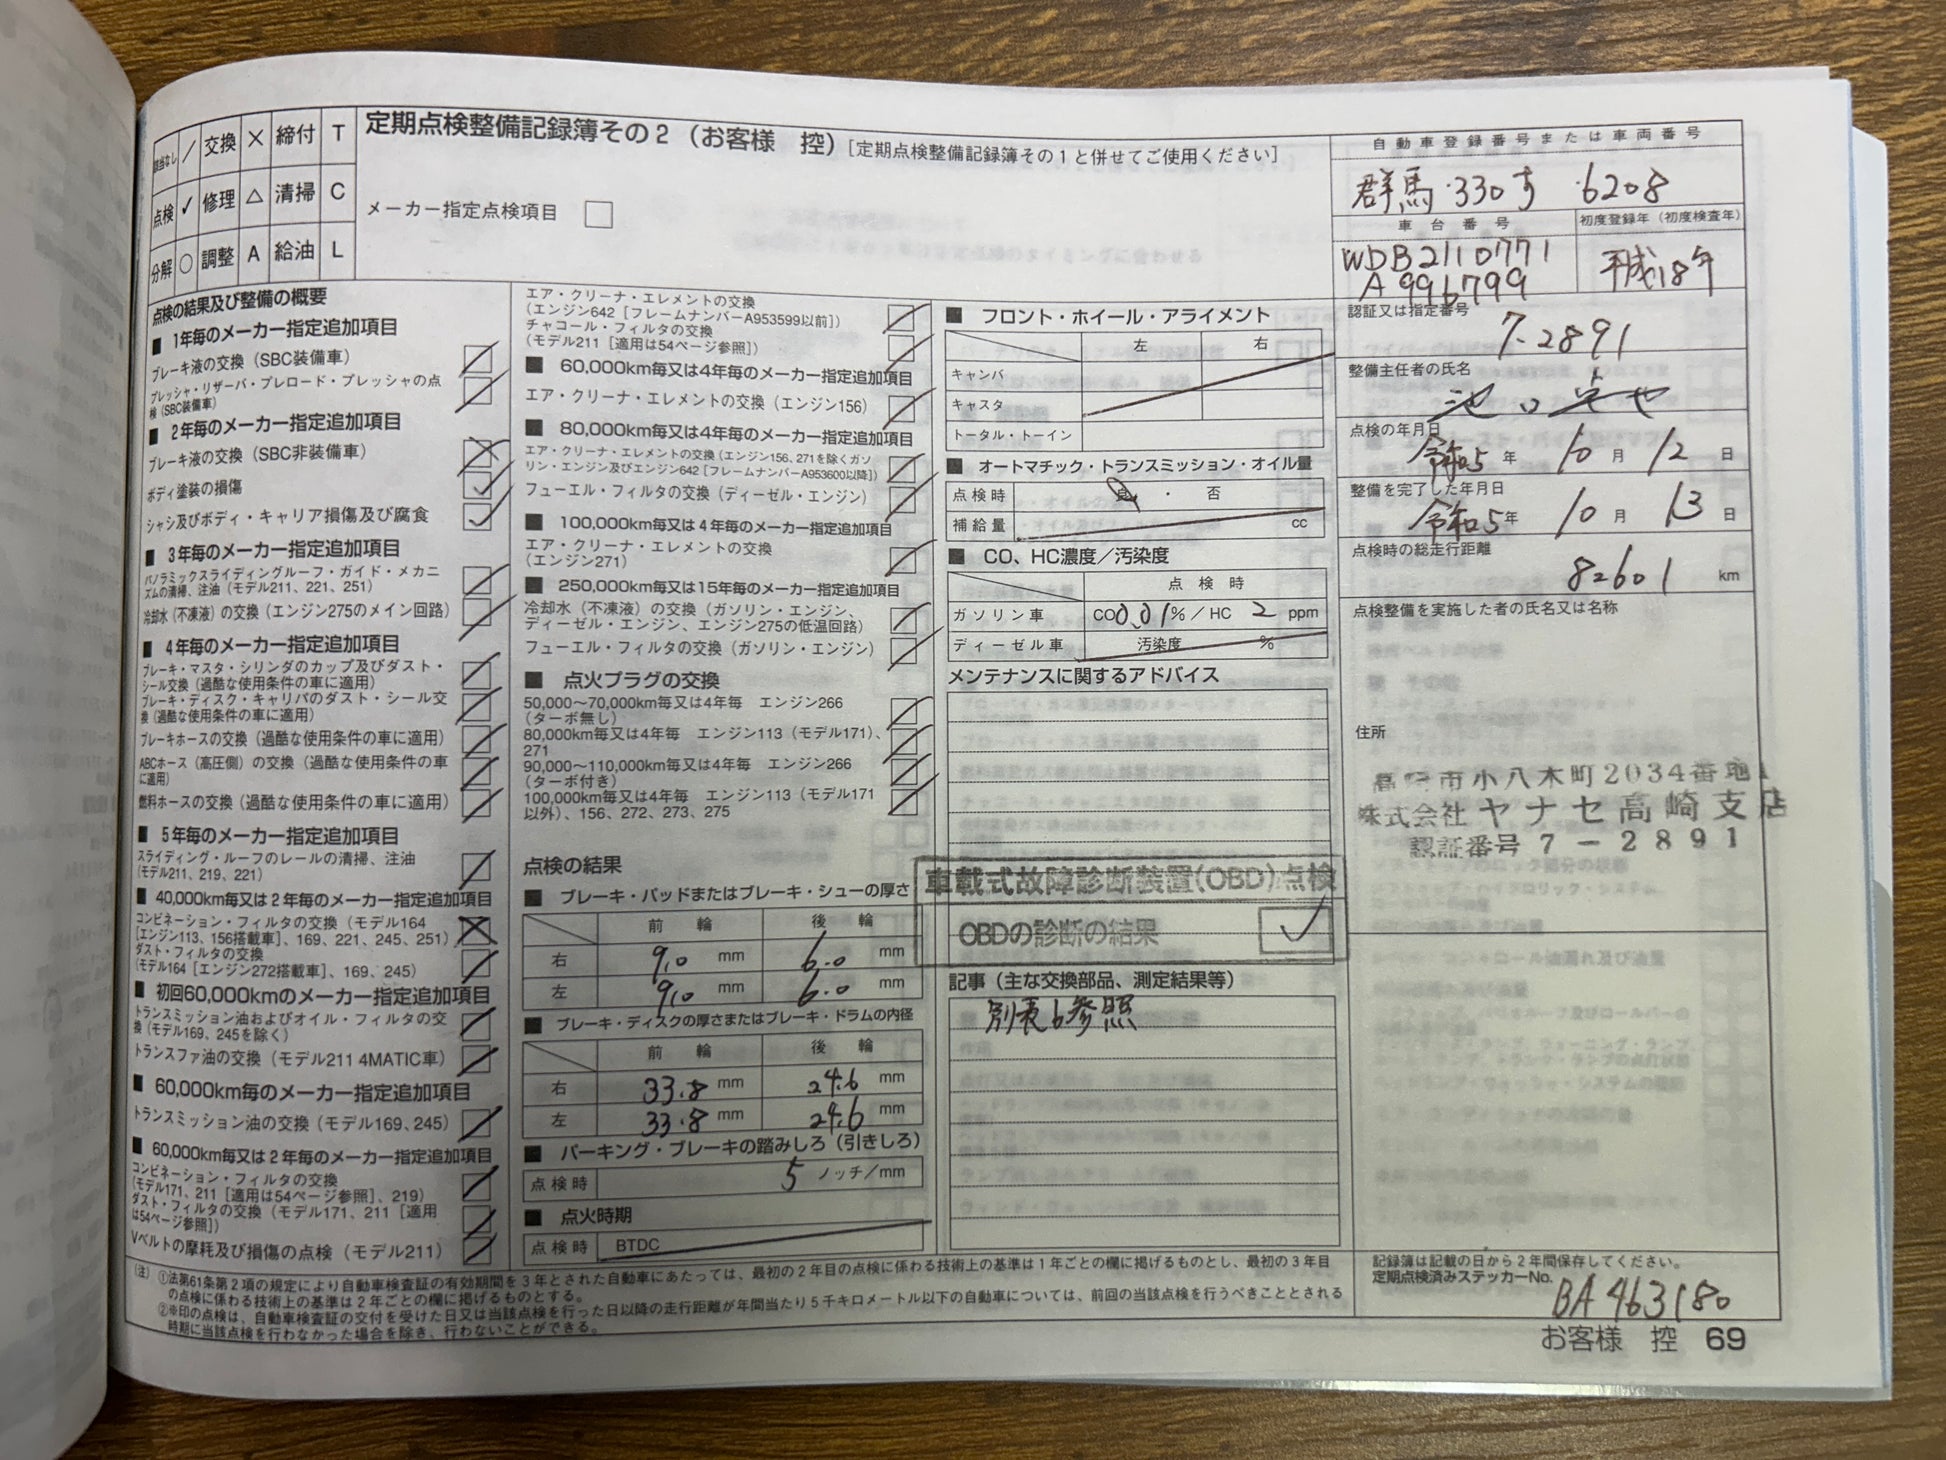 該当なし / 交換 × 締付 T
点検 ✓ 修理 △ 清掃 C
分解 ○ 調整 A 給油 L
定期点検整備記録簿その2（お客様 控）[定期点検整備記録簿その1と併せてご使用ください]
メーカー指定点検項目
点検の結果及び整備の概要
■ 1年毎のメーカー指定追加項目
ブレーキ液の交換（SBC装備車）
プレッシャ・リザーバ・プレロード・プレッシャの点
検（SBC装備車）
■ 2年毎のメーカー指定追加項目
ブレーキ液の交換（SBC非装備車）
ボディ塗装の損傷
シャシ及びボディ・キャリア損傷及び腐食
■ 3年毎のメーカー指定追加項目
パノラミックスライディングルーフ・ガイド・メカニ
ズムの清掃、注油（モデル211、221、251）
冷却水（不凍液）の交換（エンジン275のメイン回路）
■ 4年毎のメーカー指定追加項目
ブレーキ・マスタ・シリンダのカップ及びダスト・
シール交換（過酷な使用条件の車に適用）
ブレーキ・ディスク・キャリパのダスト・シール交
換（過酷な使用条件の車に適用）
ブレーキホースの交換（過酷な使用条件の車に適用）
ABCホース（高圧側）の交換（過酷な使用条件の車
に適用）
燃料ホースの交換（過酷な使用条件の車に適用）
■ 5年毎のメーカー指定追加項目
スライディング・ルーフのレールの清掃、注油
（モデル211、219、221）
■ 40,000km毎又は2年毎のメーカー指定追加項目
コンビネーション・フィルタの交換（モデル164
［エンジン113、156搭載車］、169、221、245、251）
ダスト・フィルタの交換
（モデル164［エンジン272搭載車］、169、245）
■ 初回60,000kmのメーカー指定追加項目
トランスミッション油およびオイル・フィルタの交
換（モデル169、245を除く）
トランスファ油の交換（モデル211 4MATIC車）
■ 60,000km毎のメーカー指定追加項目
トランスミッション油の交換（モデル169、245）
■ 60,000km毎又は2年毎のメーカー指定追加項目
コンビネーション・フィルタの交換
（モデル171、211［適用は54ページ参照］、219）
ダスト・フィルタの交換（モデル171、211［適用
は54ページ参照］）
Vベルトの摩耗及び損傷の点検（モデル211）
エア・クリーナ・エレメントの交換
（エンジン642［フレームナンバーA953599以前］）
チャコール・フィルタの交換
（モデル211［適用は54ページ参照］）
■ 60,000km毎又は4年毎のメーカー指定追加項目
エア・クリーナ・エレメントの交換（エンジン156）
■ 80,000km毎又は4年毎のメーカー指定追加項目
エア・クリーナ・エレメントの交換（エンジン156、271を除くガソ
リン・エンジン及びエンジン642［フレームナンバーA953600以降］）
フューエル・フィルタの交換（ディーゼル・エンジン）
■ 100,000km毎又は4年毎のメーカー指定追加項目
エア・クリーナ・エレメントの交換
（エンジン271）
■ 250,000km毎又は15年毎のメーカー指定追加項目
冷却水（不凍液）の交換（ガソリン・エンジン、
ディーゼル・エンジン、エンジン275の低温回路）
フューエル・フィルタの交換（ガソリン・エンジン）
■ 点火プラグの交換
50,000～70,000km毎又は4年毎 エンジン266
（ターボ無し）
80,000km毎又は4年毎 エンジン113（モデル171）、
271
90,000～110,000km毎又は4年毎 エンジン266
（ターボ付き）
100,000km毎又は4年毎 エンジン113（モデル171
以外）、156、272、273、275
点検の結果
■ ブレーキ・パッドまたはブレーキ・シューの厚さ
前 輪 後 輪
右 9.0 mm 6.0 mm
左 9.0 mm 6.0 mm
■ ブレーキ・ディスクの厚さまたはブレーキ・ドラムの内径
前 輪 後 輪
右 33.8 mm 24.6 mm
左 33.8 mm 24.6 mm
■ パーキング・ブレーキの踏みしろ（引きしろ）
点検時 5 ノッチ/mm
■ 点火時期
点検時 BTDC
■ フロント・ホイール・アライメント
左 右
キャンバ
キャスタ
トータル・トーイン
■ オートマチック・トランスミッション・オイル量
点検時 良 ・ 否
補給量 cc
■ CO、HC濃度／汚染度
点 検 時
ガソリン車 CO 0.01% / HC 2 ppm
ディーゼル車 汚染度 %
メンテナンスに関するアドバイス
車載式故障診断装置(OBD)点検
OBDの診断の結果 ✓
記事（主な交換部品、測定結果等）
別表6参照
自動車登録番号または車両番号
群馬 330す 6208
車台番号
初度登録年（初度検査年）
WDB2110771
A996799
平成18年
認証又は指定番号
7-2891
整備主任者の氏名
点検の年月日
令和5年 10月 12日
整備を完了した年月日
令和5年 10月 13日
点検時の総走行距離
82601 km
点検整備を実施した者の氏名又は名称
住所
高崎市小八木町2034番地1
株式会社 ヤナセ高崎支店
認証番号 7-2891
記録簿は記載の日から2年間保存してください。
定期点検済みステッカーNo.
BA463180
（注）①法第61条第2項の規定により自動車検査証の有効期間を3年とされた自動車にあたっては、最初の2年目の点検に係わる技術上の基準は1年ごとの欄に掲げるものとし、最初の3年目
の点検に係わる技術上の基準は2年ごとの欄に掲げるものとする。
②※印の点検は、自動車検査証の交付を受けた日又は当該点検を行った日以降の走行距離が年間当たり5千キロメートル以下の自動車については、前回の当該点検を行うべきこととされる
時期に当該点検を行わなかった場合を除き、行わないことができる。
お客様 控 69